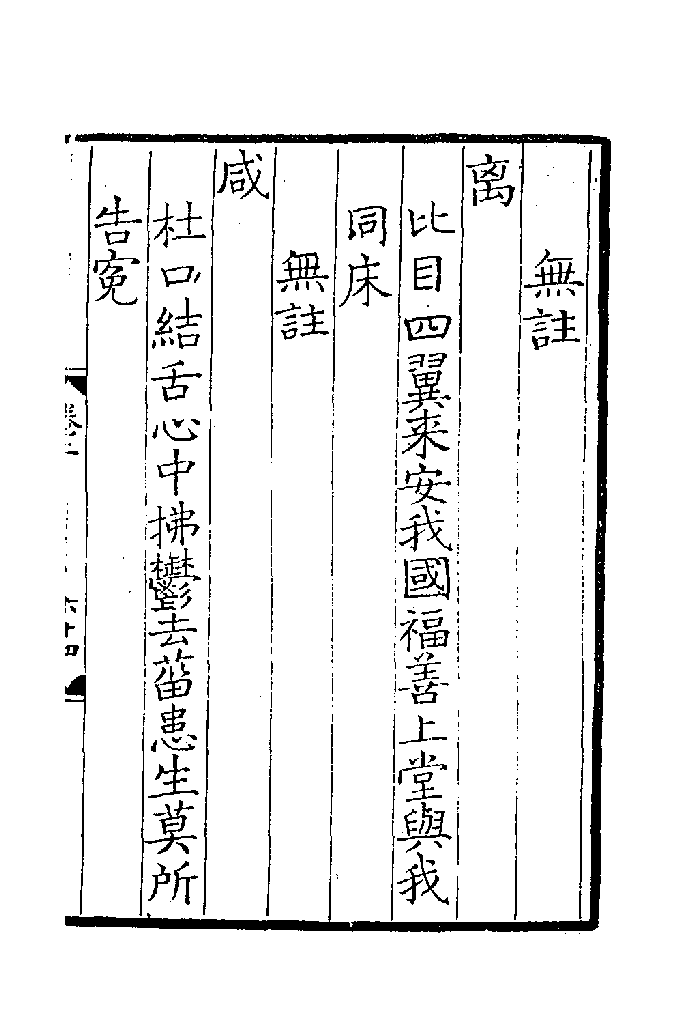 無註
离
比目四翼来安我國福善上堂與我
同床
無註
咸
杜口結舌心中拂鬱去葘患生莫所
告寃